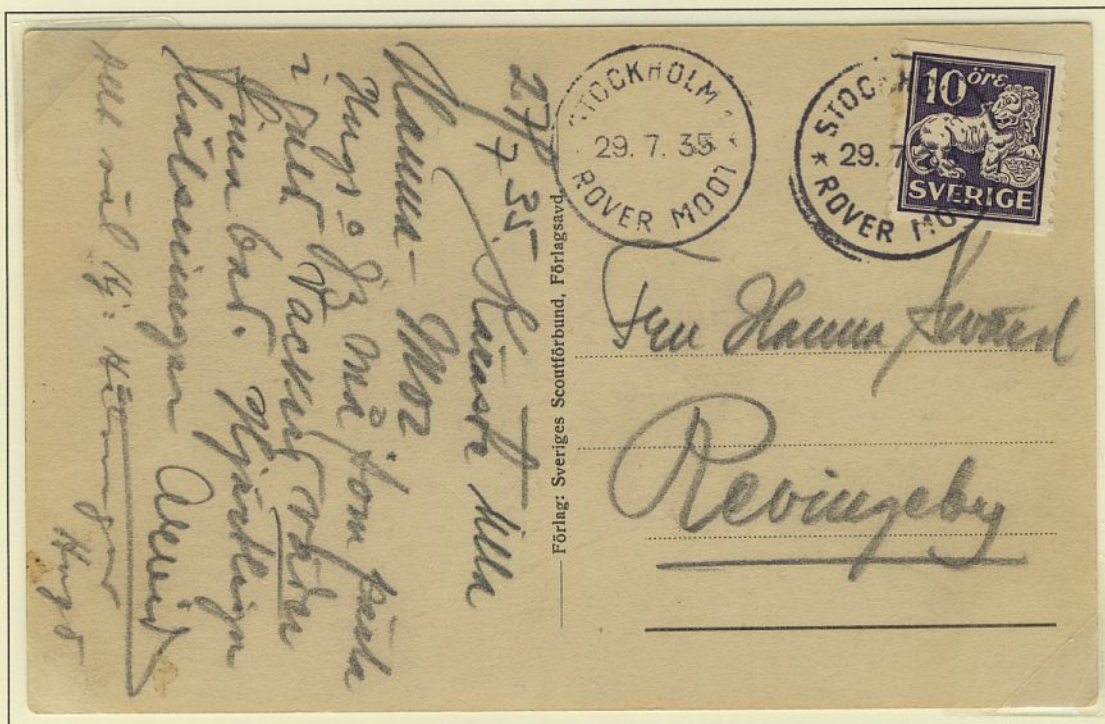 27/7 35
Käraste lilla
Hanna-Mor
Hugo o. jag må som pärla
i Vackert väder
Fina bad. Hjärtliga
hälsningar Arvid
Allt väl Hälsningar
Hugo
Förlag: Sveriges Scoutförbund, Förlagsavd.
STOCKHOLM 1
29. 7. 35
ROVER MOOT
STOCKHO
29. 7
* ROVER MOO
10 öre
SVERIGE
Fru Hanna
Revingeby